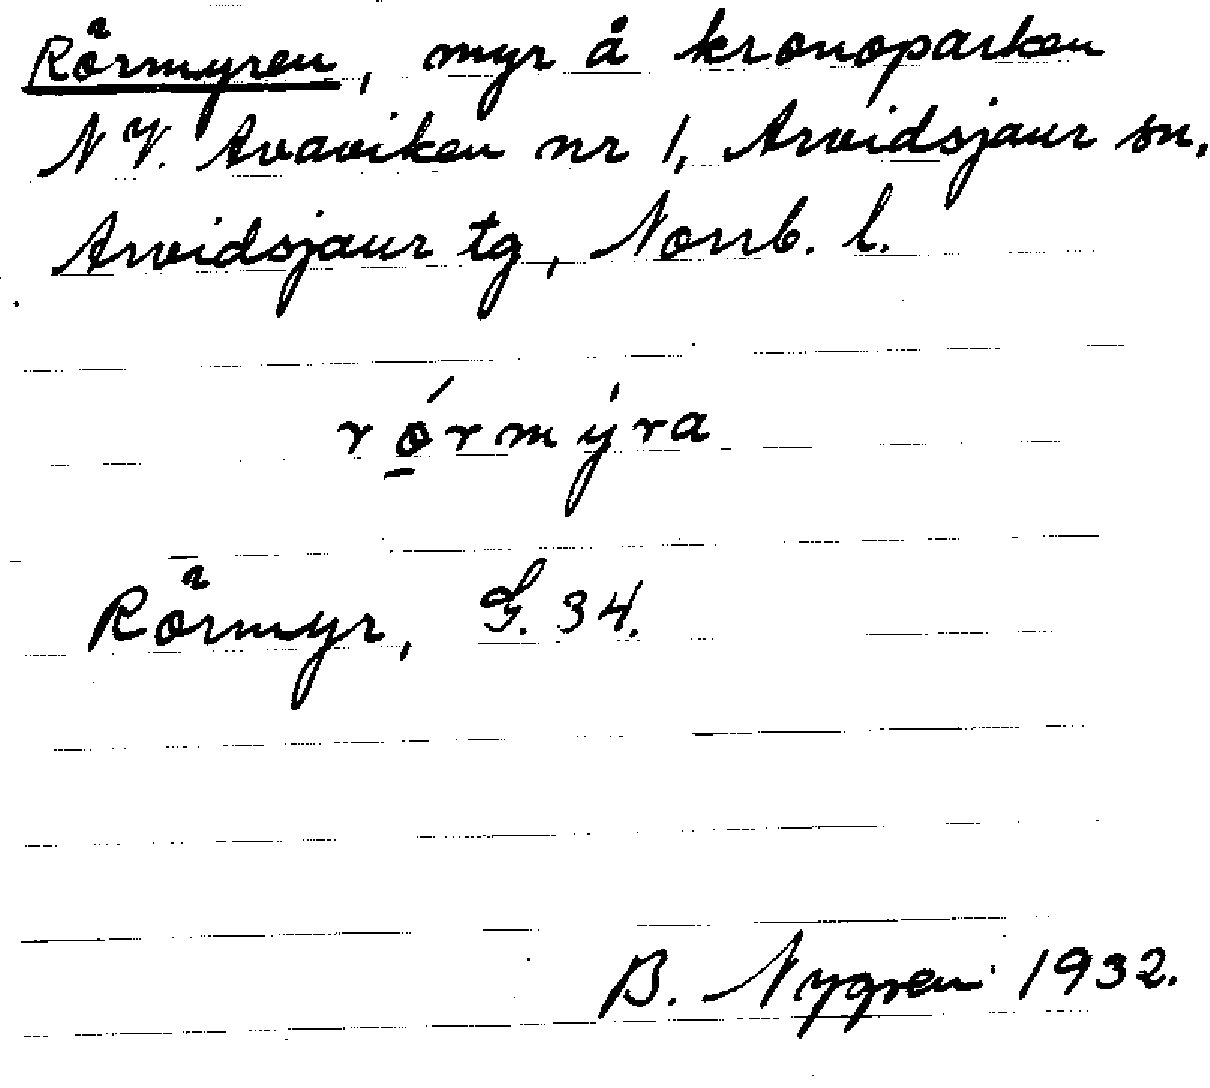 Rörmyren, myr å kronoparken
N V. Avaviken nr 1, Arvidsjaur sn,
Arvidsjaur tg, Norrb. l.
rö́rmýra
Rörmyr, G. 34.
B. Nygren 1932.